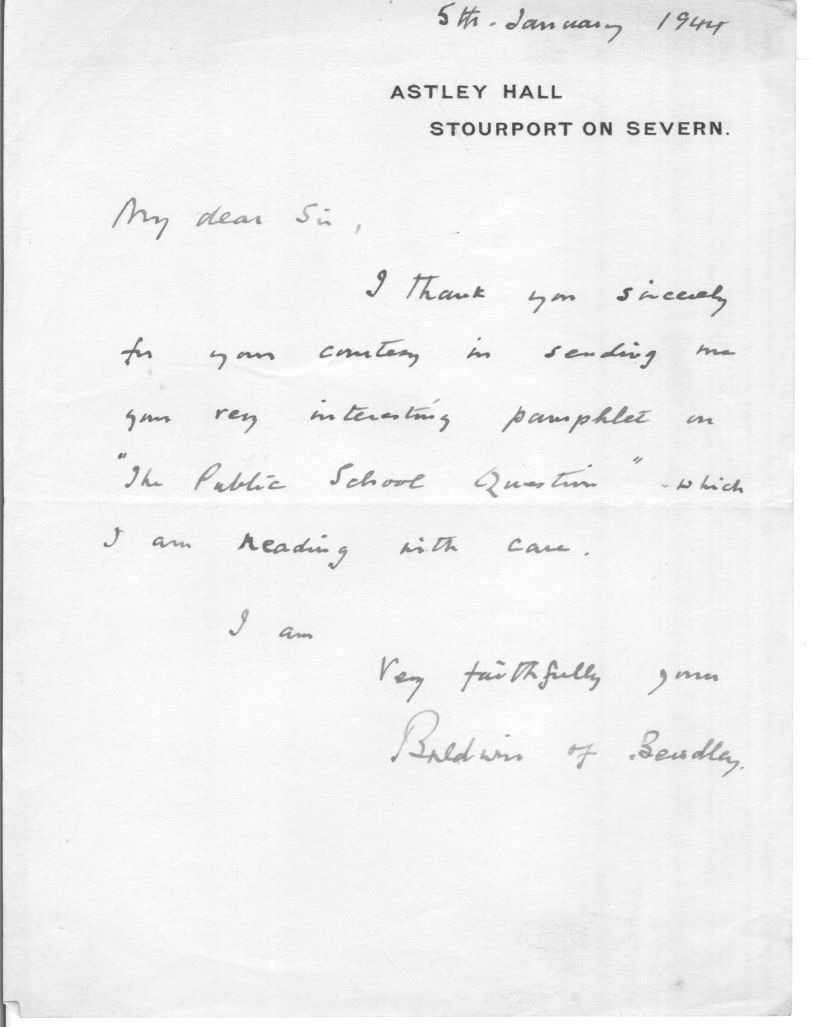 5th. January 1944
ASTLEY HALL
STOURPORT ON SEVERN.
My dear Sir,
I thank you sincerely
for your courtesy in sending me
your very interesting pamphlet on
"The Public School Question" which
I am reading with care.
I am
Very faithfully yours
Baldwin of Bewdley.